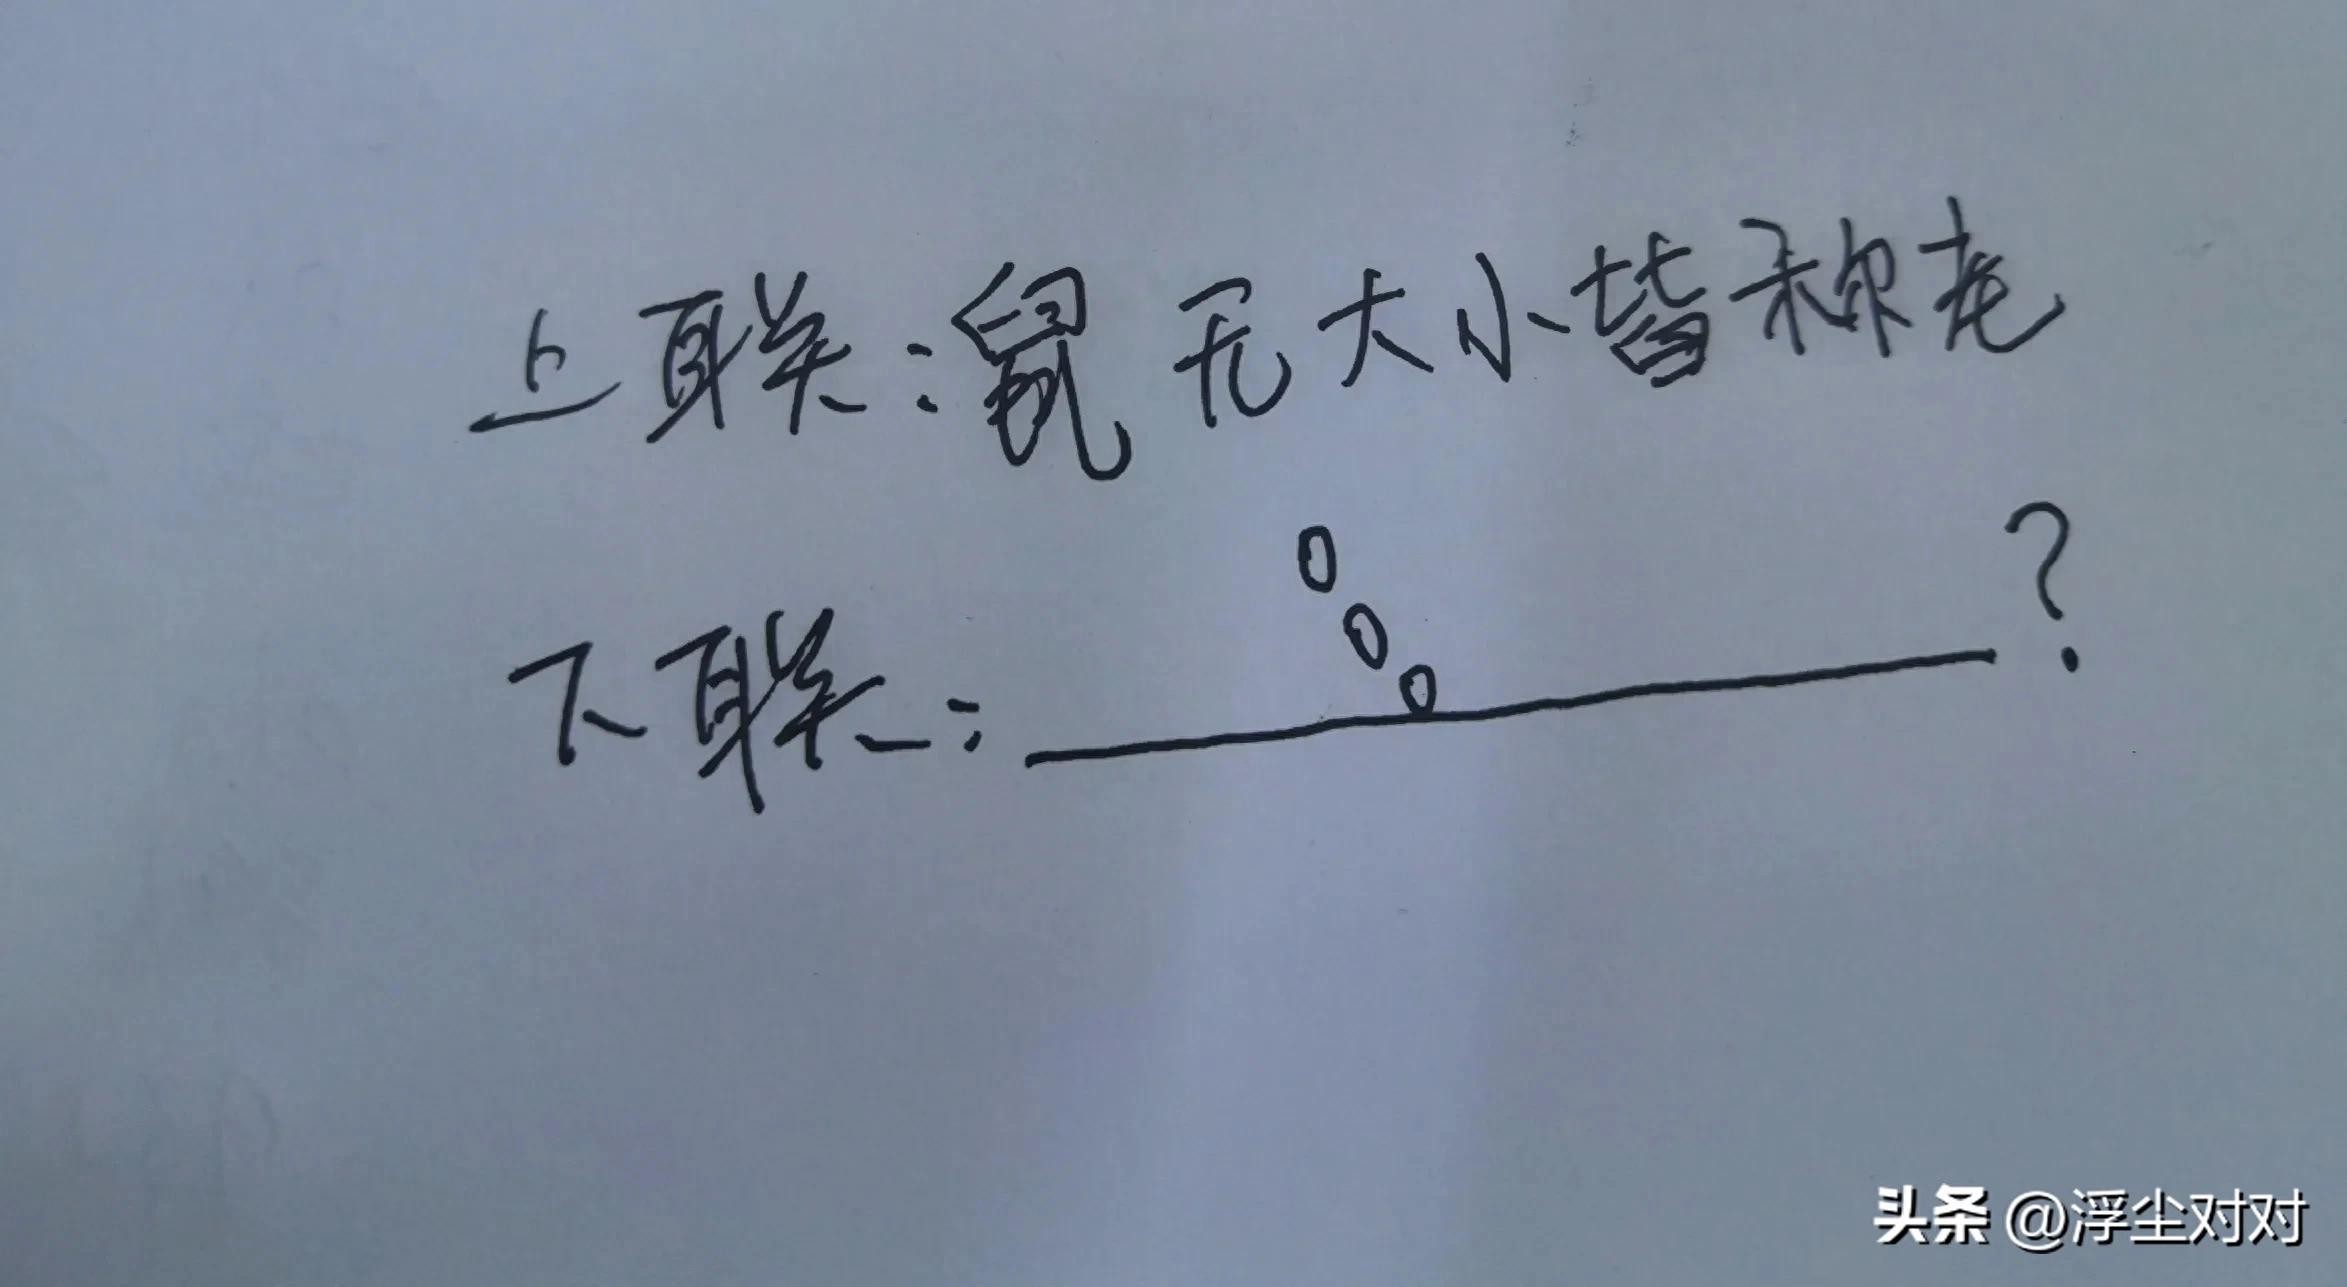 上联:鼠无大小皆称老
下联:_______?
头条@浮尘对对